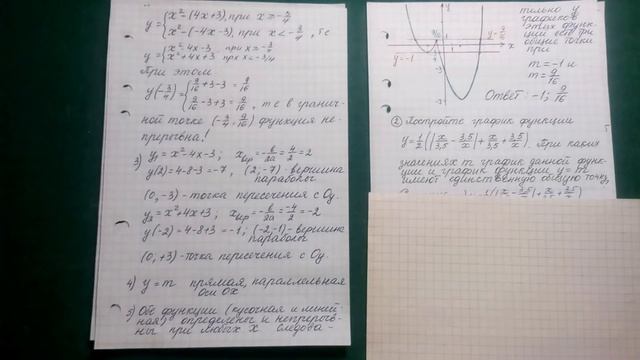 y = { x² - (4x+3), при x ≥ -3/4
x² - (-4x-3), при x < -3/4, т.е
y = { x² - 4x - 3 при x ≥ -3/4
x² + 4x + 3 при x < -3/4
При этом
y(-3/4) = { 9/16 + 3 - 3 = 9/16
9/16 - 3 + 3 = 9/16, т.е в гранич-
ной точке (-3/4; 9/16) функция не-
прерывна!
3) y₁ = x² - 4x - 3; xᵦₑₚ = -b/2a = 4/2 = 2
y(2) = 4 - 8 - 3 = -7, (2; -7) - вершина
параболы
(0, -3) - точка пересечения с Oy.
y₂ = x² + 4x + 3; = -b/2a = -4/2 = -2
y(-2) = 4 - 8 + 3 = -1; (-2; -1) - вершина
параболы
(0, +3) - точка пересечения с Oy.
4) y = m прямая, параллельная
оси OX
5) Обе функции (кусочная и линей
ная) определены и непрерыв-
ны при любых x следова-
тельно у
графиков
этих функ-
ций есть
общие точки
при
m = -1 и
m = 9/16
Ответ: -1; 9/16
y = -1
x
-3
② Постройте график функции
y = 1/2 (|x/3,5 - 3,5/x| + x/3,5 + 3,5/x). При каких
значениях m график данной функ-
ции и график функции y = m
имеют единственную общую точку,